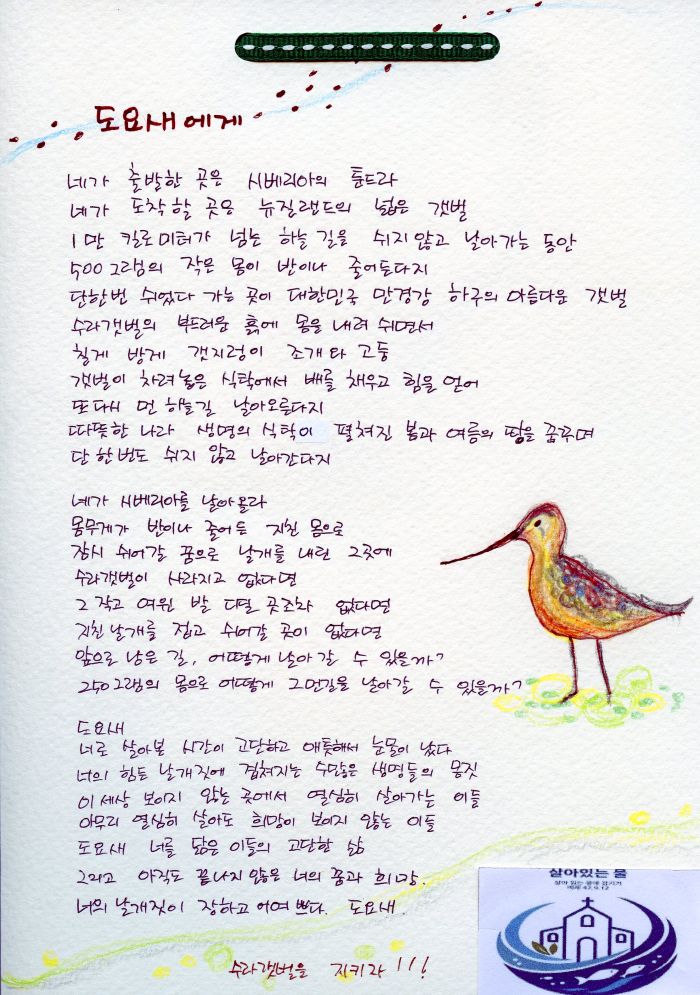 도요새에게
네가 출발한 곳은 시베리아의 툰드라
네가 도착할 곳은 뉴질랜드의 넓은 갯벌
1만 킬로미터가 넘는 하늘 길을 쉬지 않고 날아가는 동안
500그램의 작은 몸이 반이나 줄어든다지
단한번 쉬었다 가는 곳이 대한민국 만경강 하구의 아름다운 갯벌
수라갯벌의 부드러운 흙에 몸을 내려 쉬면서
칠게 방게 갯지렁이 조개 타 고둥
갯벌이 차려놓은 식탁에서 배를 채우고 힘을 얻어
또다시 먼 하늘길 날아오른다지
따뜻한 나라 생명의 식탁이 펼쳐진 봄과 여름의 땅을 꿈꾸며
단 한번도 쉬지 않고 날아간다지
네가 시베리아를 날아올라
몸무게가 반이나 줄어든 지친 몸으로
잠시 쉬어갈 꿈으로 날개를 내린 그곳에
수라갯벌이 사라지고 없다면
그 작고 여윈 발 디딜 곳조차 없다면
지친 날개를 접고 쉬어갈 곳이 없다면
앞으로 남은 길, 어떻게 날아갈 수 있을까?
250그램의 몸으로 어떻게 그먼길을 날아갈 수 있을까?
도요새
너로 살아본 시간이 고단하고 애틋해서 눈물이 났다
너의 힘든 날개짓에 겹쳐지는 수많은 생명들의 몸짓
이 세상 보이지 않는 곳에서 열심히 살아가는 이들
아무리 열심히 살아도 희망이 보이지 않는 이들
도요새 너를 닮은 이들의 고단한 삶
그리고 아직도 끝나지 않은 너의 꿈과 희망.
너의 날개짓이 장하고 어여쁘다. 도요새.
수라갯벌을 지키자!!!
살아있는 물
살아 있는 물에 잠기기
에제 47,9.12